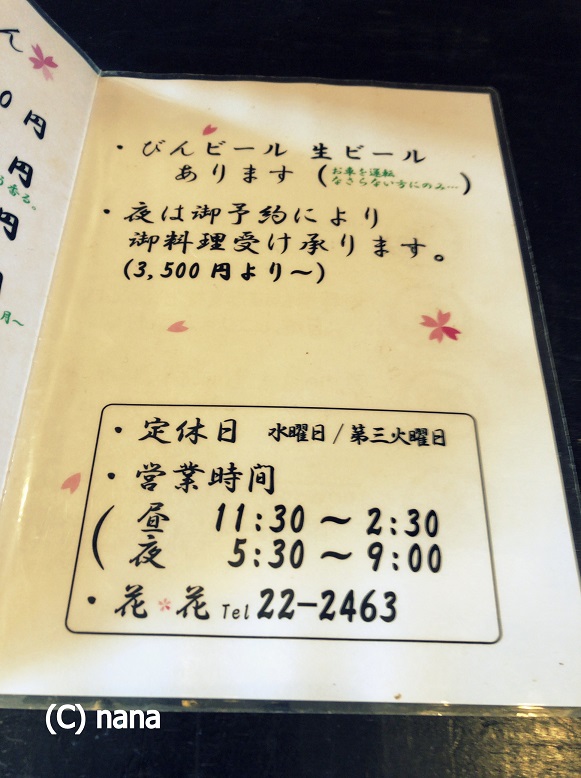 ん
0円
円
円
香る。
月~
・びんビール 生ビール
あります(お車を運転
なさらない方にのみ…)
・夜は御予約により
御料理受け承ります。
(3,500円より~)
・定休日 水曜日/第三火曜日
・営業時間
昼 11:30 ~ 2:30
夜 5:30 ~ 9:00
・花*花 Tel 22-2463
(C) nana